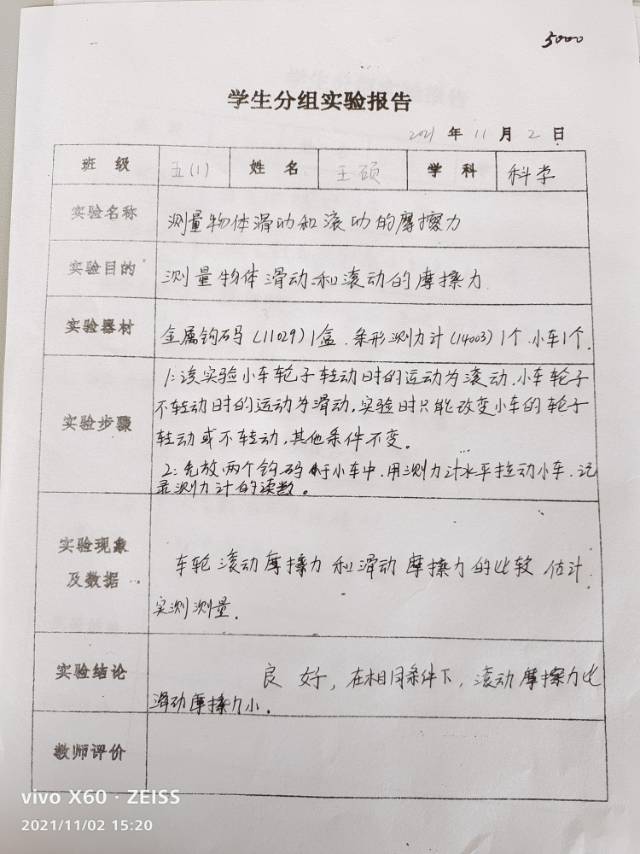 5000
学生分组实验报告
2021 年 11 月 2 日
班 级 五(1) 姓 名 王硕 学 科 科学
实验名称 测量物体滑动和滚动的摩擦力
实验目的 测量物体滑动和滚动的摩擦力
实验器材 金属钩码(11029)1盒、条形测力计(14003)1个、小车1个.
1:该实验小车轮子转动时的运动为滚动,小车轮子
不转动时的运动为滑动,实验时只能改变小车的轮子
实验步骤 转动或不转动,其他条件不变。
2:先放两个钩码于小车中,用测力计水平拉动小车,记
录测力计的读数。
实验现象
及数据
车轮滚动摩擦力和滑动摩擦力的比较 估计
实测测量.
实验结论 良 好,在相同条件下,滚动摩擦力比
滑动摩擦力小。
教师评价
vivo X60 · ZEISS
2021/11/02 15:20